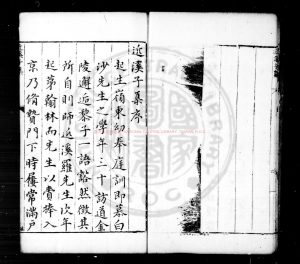 近溪子集序
起生嶺東幼奉庭訓即慕白
沙先生之學年三十訪道金
陵邂逅黎子一語豁然徵其
所自則師近溪羅先生次年
起第翰林而先生以賷捧入
京乃脩贄門下時屨常滿戶